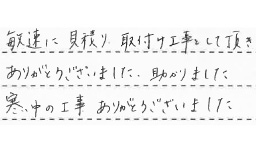 敏速に見積り、取付け工事をして頂き
ありがとうございました。助かりました
寒い中の工事 ありがとうございました